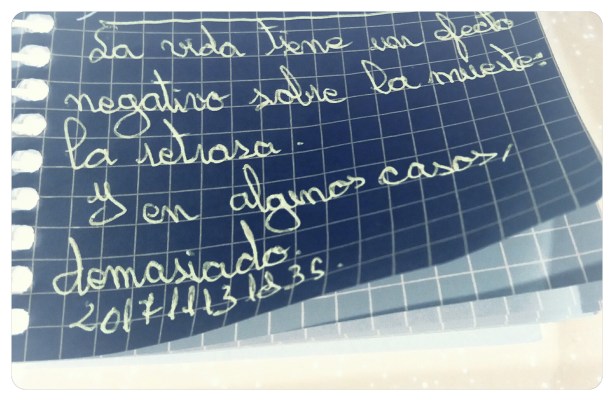 La vida tiene un efecto
negativo sobre la muerte:
la retrasa.
Y en algunos casos,
demasiado.
2017 11 13 18.35.